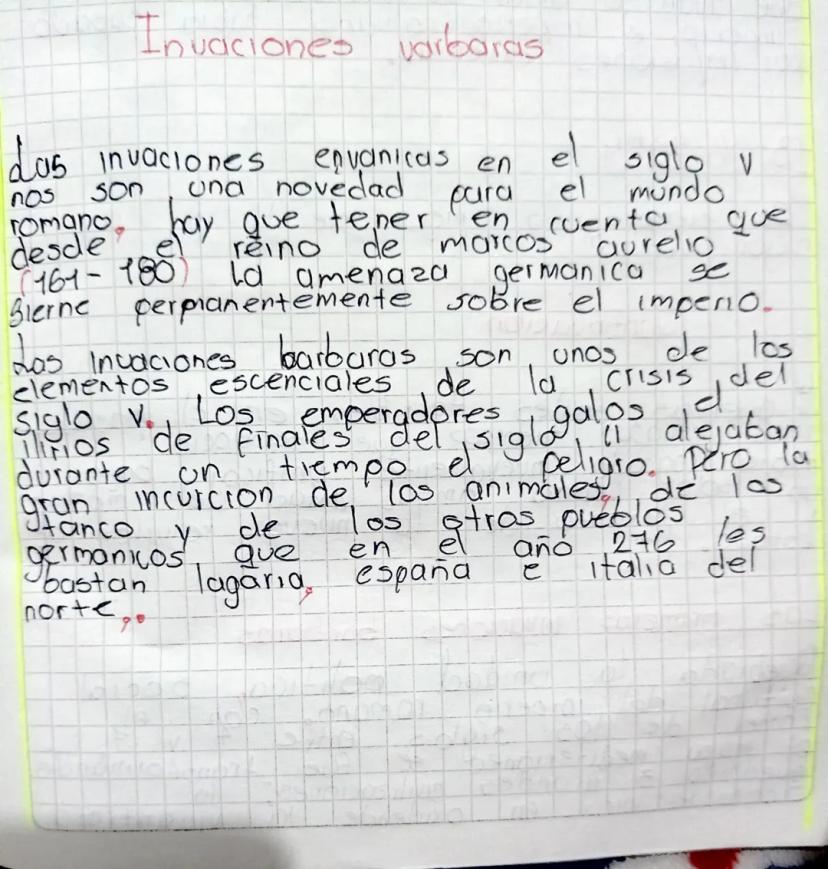 Invaciones varbaras
Las invaciones ervanicas en el siglo V
nos son una novedad para el mundo
romano, hay que tener en cuenta que
desde el reino de marcos aurelio
(161-180) La amenaza germanica se
sierne permanentemente sobre el imperio.
Las invaciones barbaras son unos de los
elementos escenciales de la crisis del
siglo V. Los emperadores galos el
ilirios de finales del siglo II alejaban
durante un tiempo el peligro. Pero la
gran incurcion de los animales, de los
tanco y de los otros pueblos
germanicos que en el año 276 les
bastan lagaria, españa e italia del
norte,.